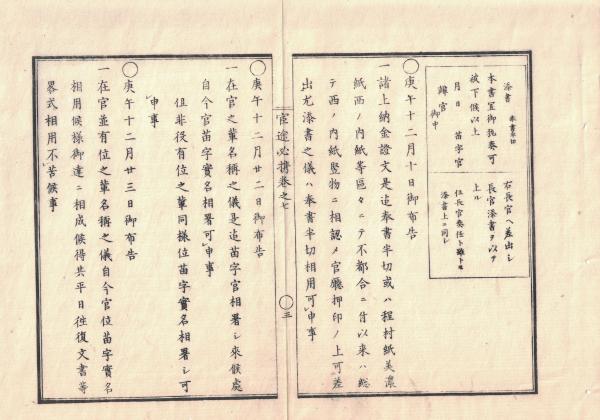 添書 奉書半切
本書宜御執奏可
被下候以上
月日 苗字官
辨官 御中
右長官ヘ差出シ
長官添書ヲ以テ
上ル
但長官奏任ト雖トモ
添書上ニ同シ
◯庚午十二月十日御布告
一諸上納金證文是迄奉書半切或ハ程村紙美濃
紙西ノ内紙等區々ニテ不都合ニ付以来ハ総
テ西ノ内紙竪物ニ相認メ官廳押印ノ上可差
出尤添書之儀ハ奉書半切相用可申事
官途必携巻之七
◯三
◯庚午十二月廿二日御布告
一在官之輩名稱之儀是迄苗字官相署シ來候處
自今官苗字實名相署可申事
但非役有位之輩同様位苗字實名相署シ可
申事
◯庚午十二月廿三日御布告
一在官並有位之輩名稱之儀自今官位苗字實名
相用候様御達ニ相成候得共平日往復文書等
畧式相用不苦候事